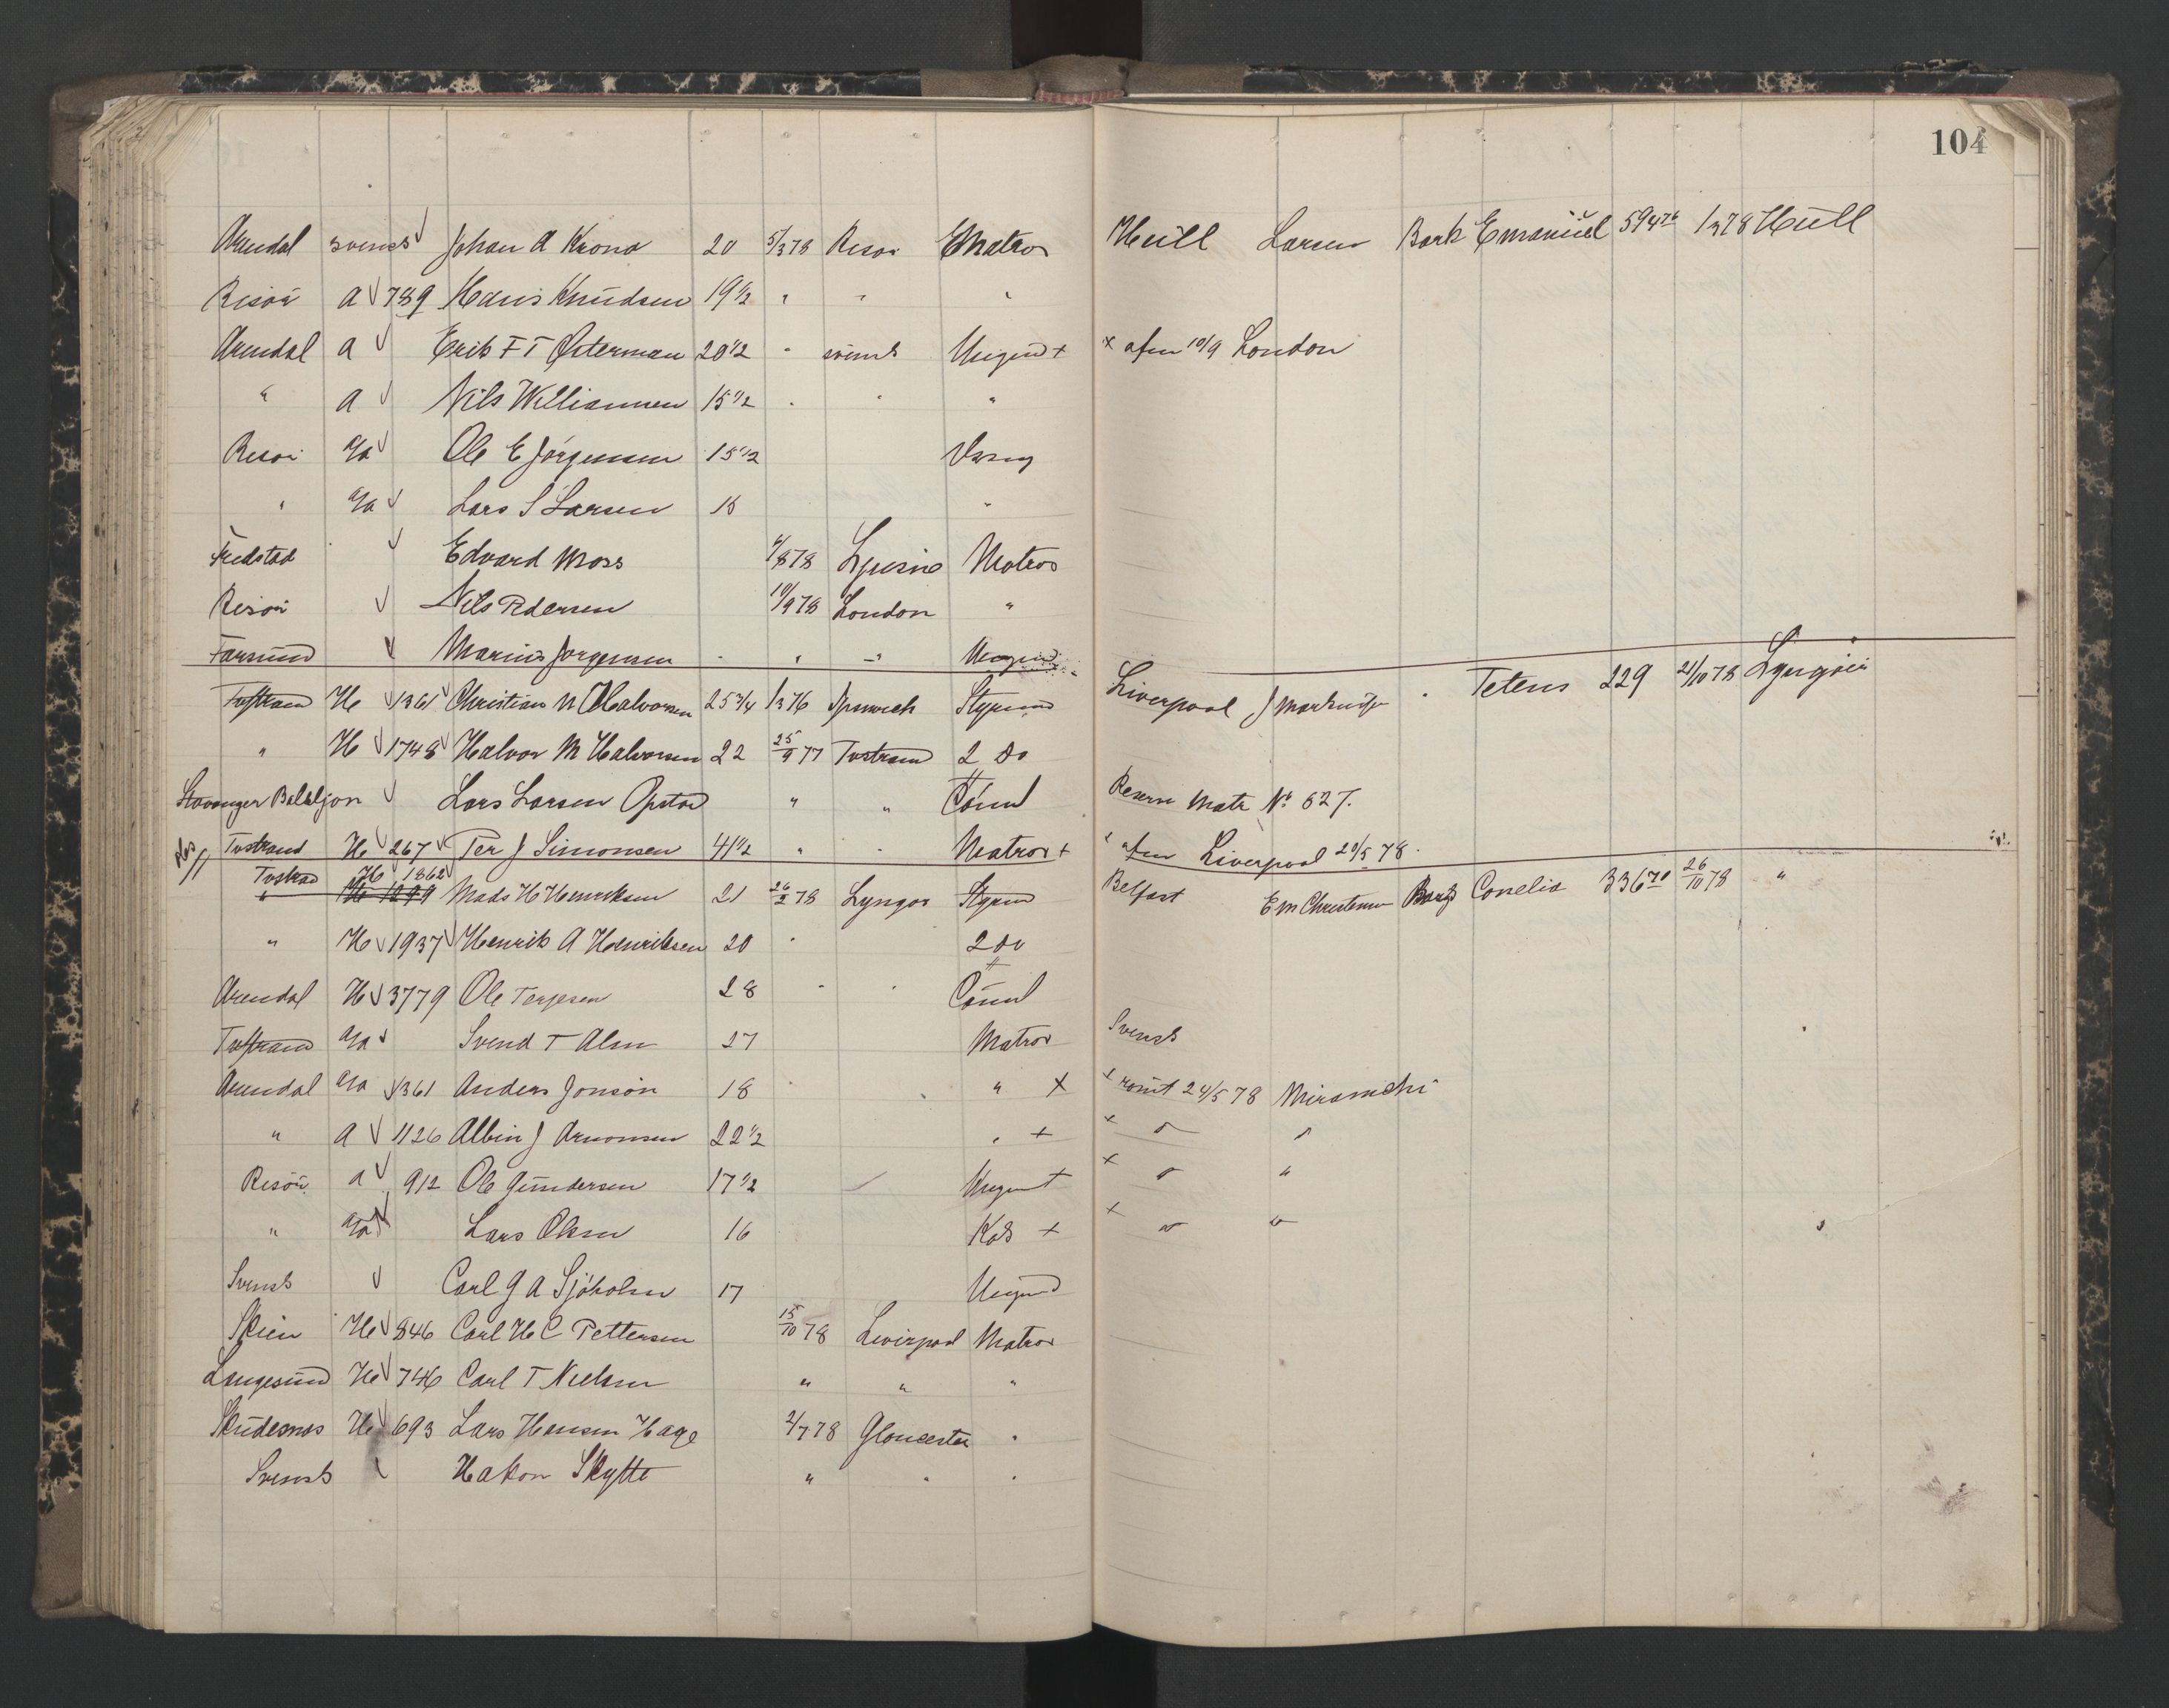 104
Arendal svensk Johan A Krona 20 5/3 78 Risör EMatros Hull Larsen Bark Emanuel 594 76 1/3 78 Hull
Risör a 789 Hans Knudsen 19 1/2 " " "
Arendal a Erik F T Østerman 20 1/2 " svensk Ungmd + x afm 10/9 London
" a Nils Williamsen 15 1/2 " " "
Risör a/a Ole E Jörgensen 15 1/2
" a/a Lars S Larsen 18 "
Fredstad Edvard Moss 4/8 78 Ljusne Matros
Risör Nils Pedersen 10/9 78 London "
Farsund Marius Jorgensen " " " Ungmd
Tvestrand He 1361 Christian N Halvorsen 25 3/4 1/3 76 Ipswich Styrmd Liverpool J " Tetens 229 21/10 78 Lyngör
" He 1748 Halvor M Halvorsen 22 25/9 77 Tvstrand 2 do
Stavanger Lars Larsen Opstad " " Tömd Reserve Matr No 627.
Tvstrand He 267 Per J Simonsen 41 1/2 " " Matros + x afm Liverpool 20/5 78.
Tvstrad He 1862
" He 1299 Mads H Henriksen 21 26/2 78 Lyngör Styrmd Belfast E M Christensen Bark Conelia 336 70 26/10 78 "
" He 1937 Henrik A Henriksen 20 " 2 do
Arendal He 3779 Ole Terjesen 28 " " Tömd
Tvstrand a/a Svend T Alm 27 Matros Svensk
Arendal a/a 361 Anders Jonson 18 " + + römt 24/5 78 Miramichi
" a 1126 Albin J Aronsen 22 1/2 " + + " "
Risör a 912 Ole Gundersen 17 1/2 Ungmd + + " "
" a/a Lars Olsen 16 Kok + + " "
Svensk Carl G A Sjöholm 17 Ungmd
Skien He 846 Carl H C Pettersen 15/10 78 Liverpool Matros
Langesund He 746 Carl T Nielsen " " "
Skudesnes He 693 Lars Hansen Hage 2/7 78 Gloucester "
Svensk Hakon Skytte " " "